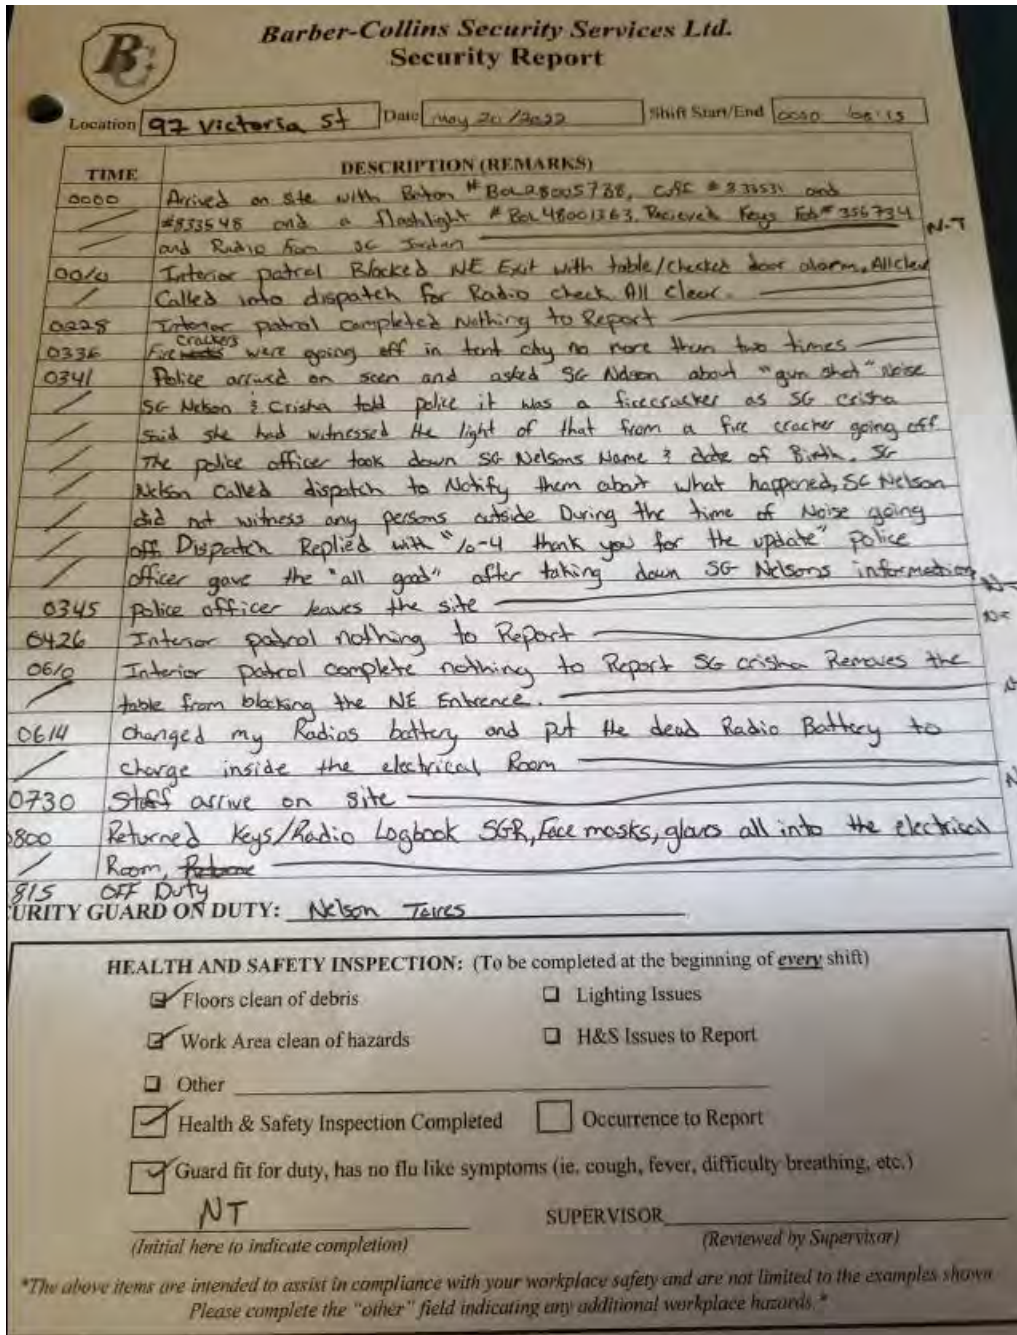 Barber-Collins Security Services Ltd.
Security Report
BC
Location 97 Victoria St Date May 20/2022 Shift Start/End /08:15
TIME DESCRIPTION (REMARKS)
0000 Arrived on site with Baton and
#833548 and a flashlight Recieved Keys Fob# 356734
and Radio from SG Jordan N-T
Interior patrol Blocked NE Exit with table/checked door alarm, All clear
Called into dispatch for Radio check. All Clear.
0228 Interior patrol completed Nothing to Report
crackers
0336 Fire were going off in tent city no more than two times
0341 Police arrived on scen and asked SG Nelson about "gun shot" Noise
SG Nelson & Crisha told police it was a firecracker as SG crisha
said she had witnessed the light of that from a fire cracker going off
The police officer took down SG Nelsons Name & date of Birth. SG
Nelson called dispatch to Notify them about what happened, SG Nelson
did not witness any persons outside During the time of Noise going
off. Dispatch Replied with "10-4 thank you for the update" police
officer gave the "all good" after taking down SG Nelsons information
0345 police officer leaves the site
0426 Interior patrol nothing to Report
0610 Interior patrol complete nothing to Report SG crisha Removes the
table from blocking the NE Entrence.
0614 Changed my Radios battery and put the dead Radio Battery to
charge inside the electrical Room
0730 Staff arrive on site
0800 Returned Keys/Radio Logbook SGR, Face masks, gloves all into the electrical
Room,
815 OFF Duty
URITY GUARD ON DUTY: Nelson
HEALTH AND SAFETY INSPECTION: (To be completed at the beginning of every shift)
Floors clean of debris Lighting Issues
Work Area clean of hazards H&S Issues to Report
Other
Health & Safety Inspection Completed Occurrence to Report
Guard fit for duty, has no flu like symptoms (ie. cough, fever, difficulty breathing, etc.)
NT SUPERVISOR
(Initial here to indicate completion) (Reviewed by Supervisor)
*The above items are intended to assist in compliance with your workplace safety and are not limited to the examples shown
Please complete the "other" field indicating any additional workplace hazards.*